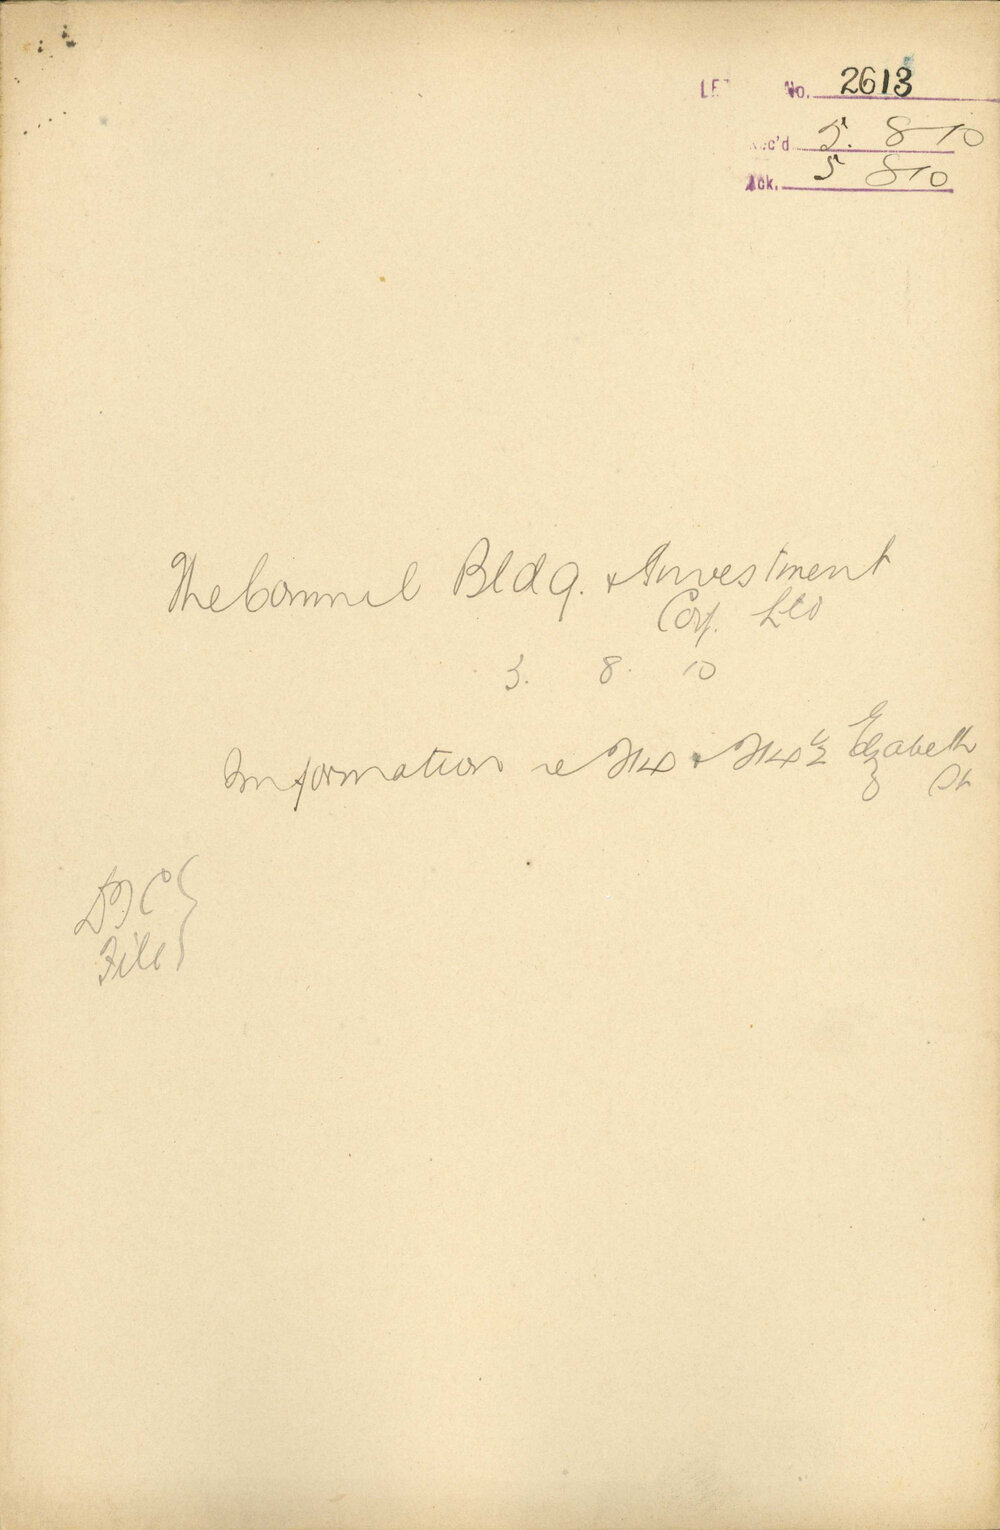 No. 2613
Rec'd 5. 8 10
Ack. 5 8 10
The Comml Bldg. & Investment
Corp. Ltd
5. 8. 10
Information re & Elizabeth
St
File